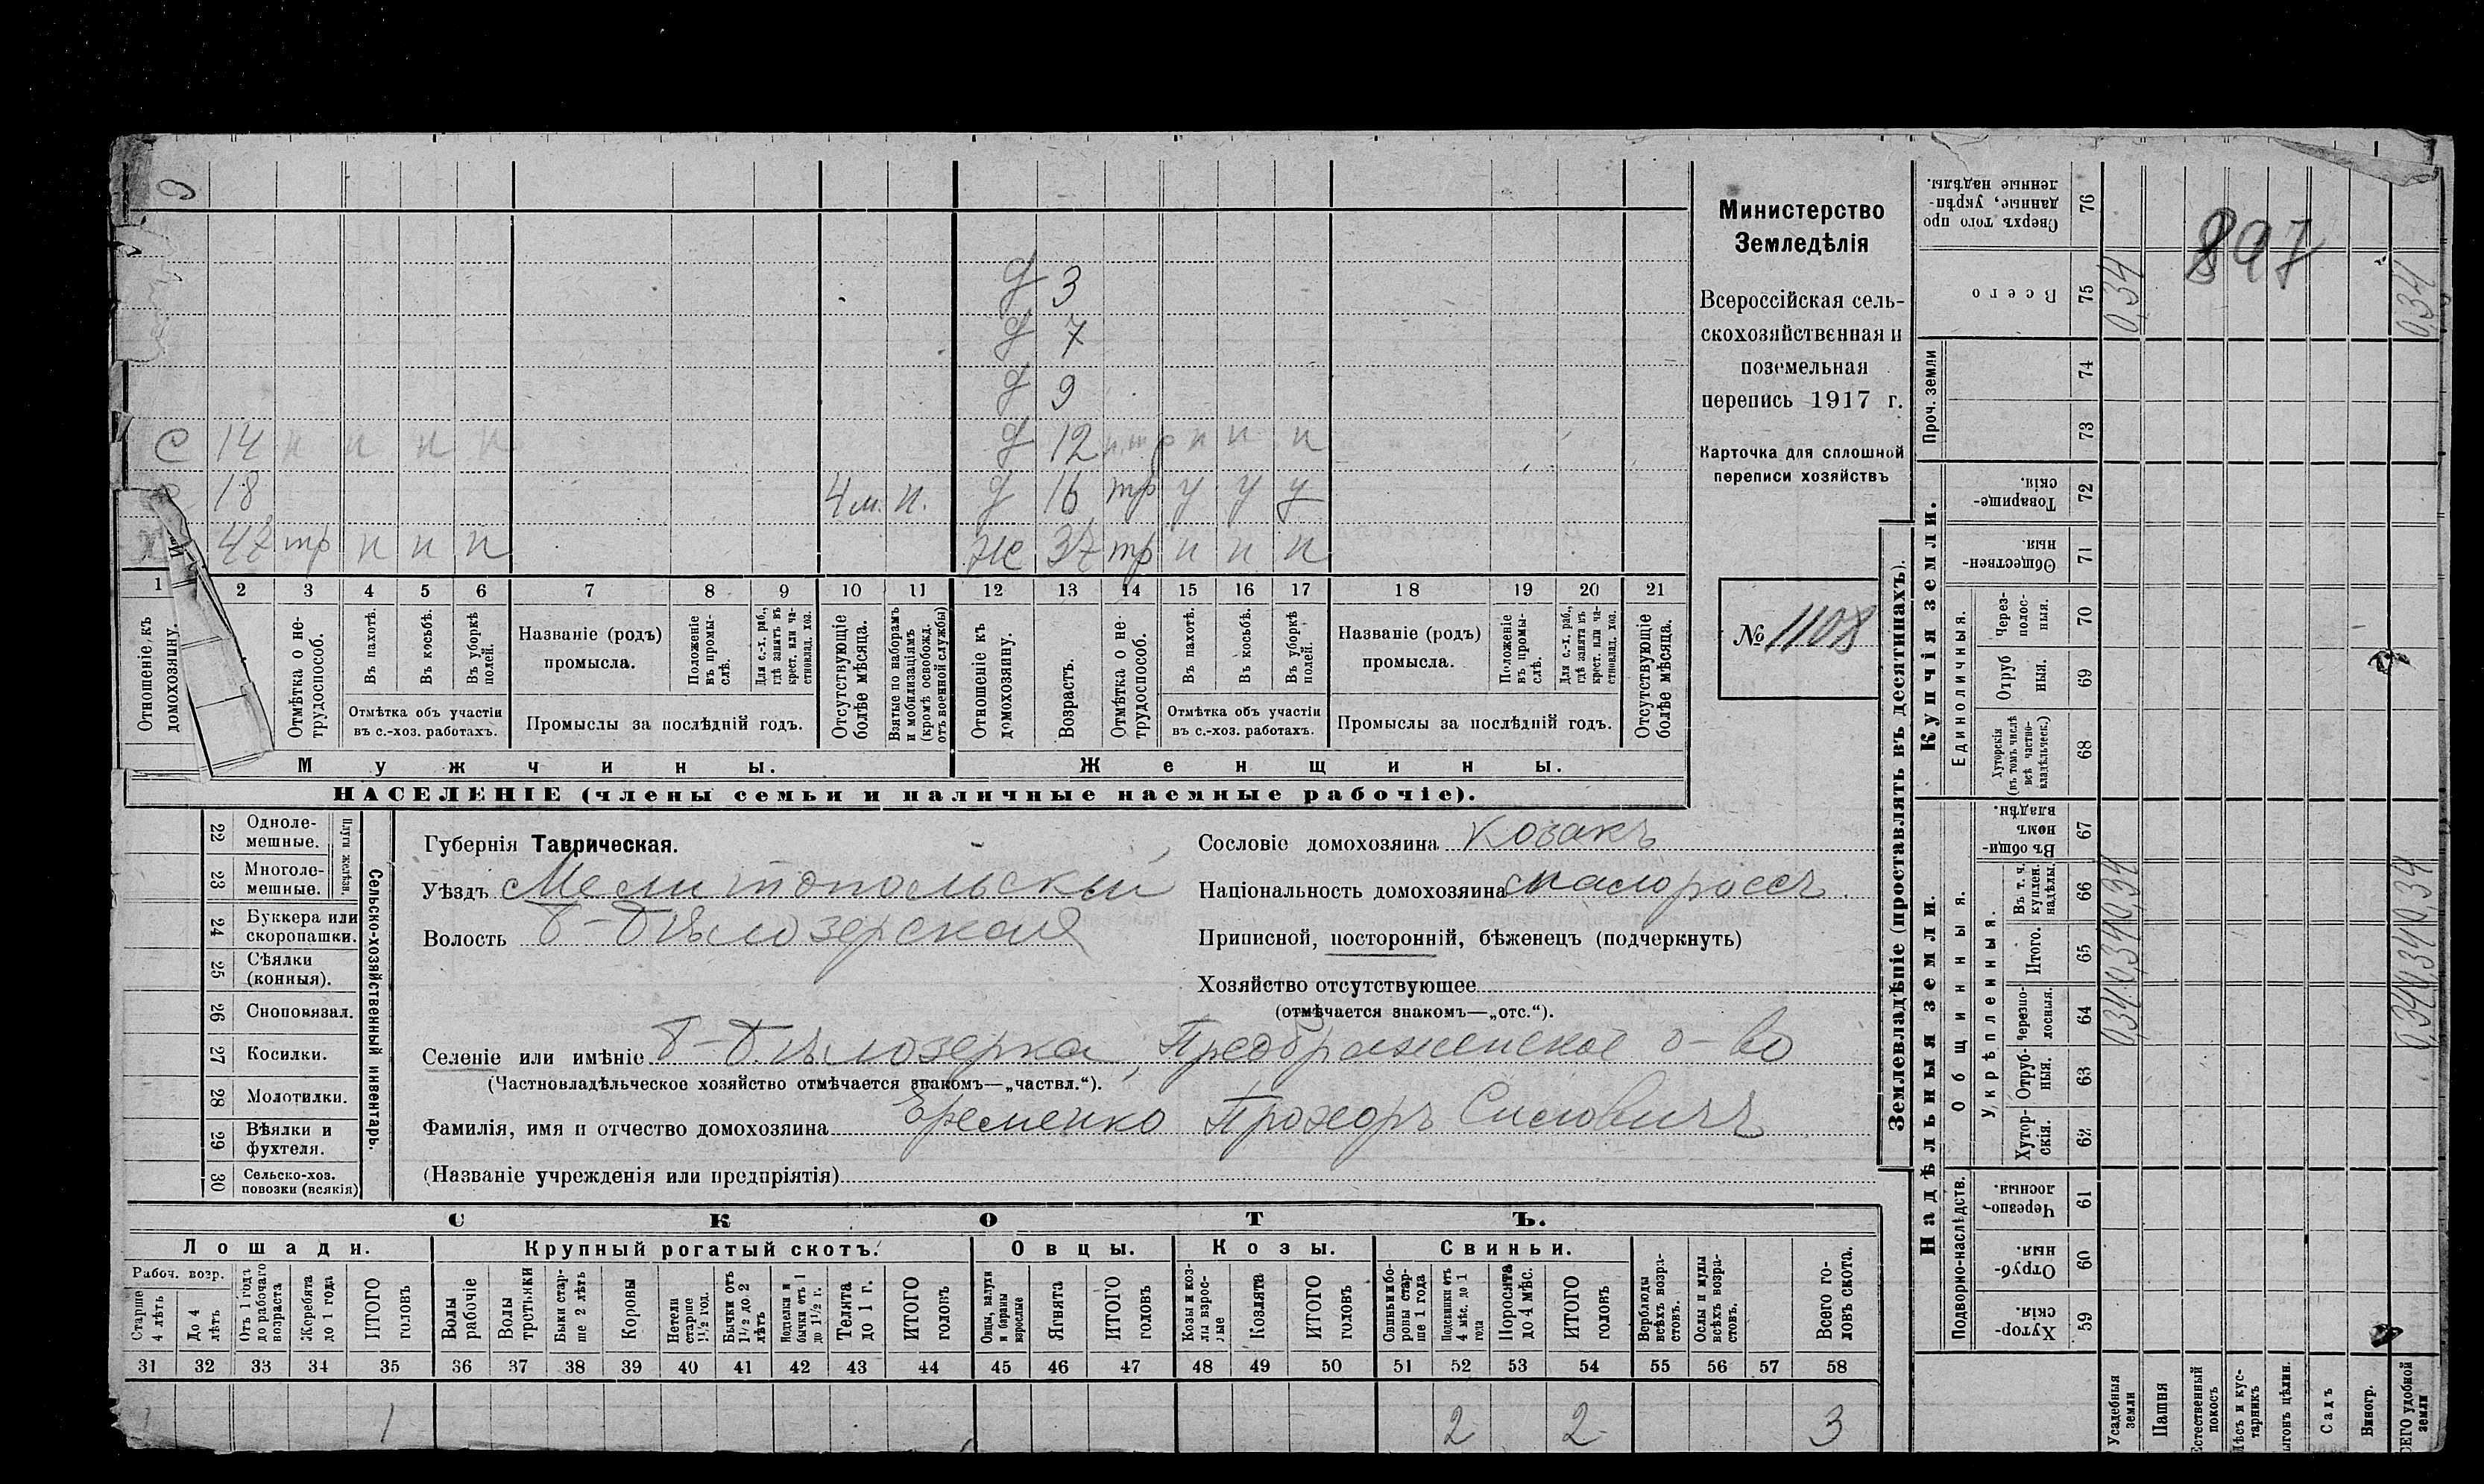 д 3
д 7
д 9
с 14 н п п п д 12 н п п
18 4 м. п. д 16 тр у у у
х 47 тр п п п же 37 тр п п п
1 2 3 4 5 6 7 8 9 10 11 12 13 14 15 16 17 18 19 20 21
Отношеніе къ домохозяину.
Отмѣтка о не-
трудоспособ.
Въ пахотѣ.
Въ косьбѣ.
Въ уборкѣ
полей.
Отмѣтка объ участіи
въ с.-хоз. работахъ.
Названіе (родъ)
промысла.
Положеніе
въ промы-
слѣ.
Для с.-х. раб.,
гдѣ занятъ въ
крест. или ча-
стновлад. хоз.
Промыслы за послѣдній годъ.
Отсутствующіе
болѣе мѣсяца.
Взятые по наборамъ
и мобилизаціямъ
(кромѣ освобожд.
отъ военной службы)
Отношеніе къ
домохозяину.
Возрастъ.
Отмѣтка о не-
трудоспособ.
Въ пахотѣ.
Въ косьбѣ.
Въ уборкѣ
полей.
Отмѣтка объ участіи
въ с.-хоз. работахъ.
Названіе (родъ)
промысла.
Положеніе
въ промы-
слѣ.
Для с.-х. раб.,
гдѣ занята въ
крест. или ча-
стновлад. хоз.
Промыслы за послѣдній годъ.
Отсутствующіе
болѣе мѣсяца.
Мужчины.
Женщины.
НАСЕЛЕНІЕ (члены семьи и наличные наемные рабочіе).
Министерство
Земледѣлія
Всероссійская сель-
скохозяйственная и
поземельная
перепись 1917 г.
Карточка для сплошной
переписи хозяйствъ
№ 1108
22 Одноле-
мешные.
23 Многоле-
мешные.
Плуги желѣзн.
24 Буккера или
скоропашки.
25 Сѣялки
(конныя).
26 Сноповязал.
27 Косилки.
28 Молотилки.
29 Вѣялки и
фухтеля.
30 Сельско-хоз.
повозки (всякія)
Сельско-хозяйственный инвентарь.
Губернія Таврическая.
Уѣздъ Мелитопольскій
Волость Б-Бѣлозерская
Сословіе домохозяина козакъ
Національность домохозяина малороссъ.
Приписной, посторонній, бѣженецъ (подчеркнуть)
Хозяйство отсутствующее
(отмѣчается знакомъ—„отс.“).
Селеніе или имѣніе Б-Бѣлозерка, Преображенское о-во
(Частновладѣльческое хозяйство отмѣчается знакомъ—„частвл.“).
Фамилія, имя и отчество домохозяина Еременко Прохоръ Сисовичъ
(Названіе учрежденія или предпріятія)
СКОТЪ.
Лошади. Крупный рогатый скотъ. Овцы. Козы. Свиньи.
Рабоч. возр.
Старше
4 лѣтъ
До 4
лѣтъ
Отъ 1 года
до рабочаго
возраста
Жеребята
до 1 года
ИТОГО
головъ
Волы
рабочіе
Волы
третьяки
Быки стар-
ше 2 лѣтъ
Коровы
Нетели
старше
1½ год.
Бычки отъ
1½ до 2
лѣтъ
Подтелки и
бычки отъ 1
до 1½ г.
Телята
до 1 г.
ИТОГО
головъ
Овцы, валухи
и бараны
взрослые
Ягнята
ИТОГО
головъ
Козы и коз-
лы взрос-
лые
Козлята
ИТОГО
головъ
Свиньи и бо-
ровы стар-
ше 1 года
Подсвинки отъ
4 мѣс. до 1
года
Поросята
до 4 мѣс.
ИТОГО
головъ
Верблюды
всѣхъ возра-
стовъ.
Ослы и мулы
всѣхъ возра-
стовъ.
Всего го-
ловъ скота.
31 32 33 34 35 36 37 38 39 40 41 42 43 44 45 46 47 48 49 50 51 52 53 54 55 56 57 58
1 1 2 2 3
Землевладѣніе (проставлять въ десятинахъ).
Надѣльныя земли.
Купчія земли.
Проч. земли
Подворно-наслѣдств.
Общинныя.
Укрѣпленныя.
Единоличныя.
Сверхъ того про
данные, укрѣп-
ленные надѣлы.
76
Всего
75
74
73
Товарище-
скія.
72
Обществен-
ныя.
71
Через-
полос-
ныя.
70
Отруб
ныя.
69
Хуторскія
(въ томъ числѣ
всѣ частно-
владѣльческ.)
68
Въ общин-
номъ
владѣн.
67
Въ т. ч.
куплен.
надѣлы.
66
Итого.
65
Черезпо-
лосныя.
64
Отруб-
ныя.
63
Хутор-
скія.
62
Черезпо-
лосныя.
61
Отруб-
ныя.
60
Хутор-
скія.
59
897
0,34 0,34
0,34 0,34 0,34
0,34 0,34 0,34
Усадебныя
земли
Пашня
Естественный
покосъ
Лѣсъ и кус-
тарникъ
Выгонъ цѣлин.
Садъ
Виногр.
ВСЕГО удобной
земли